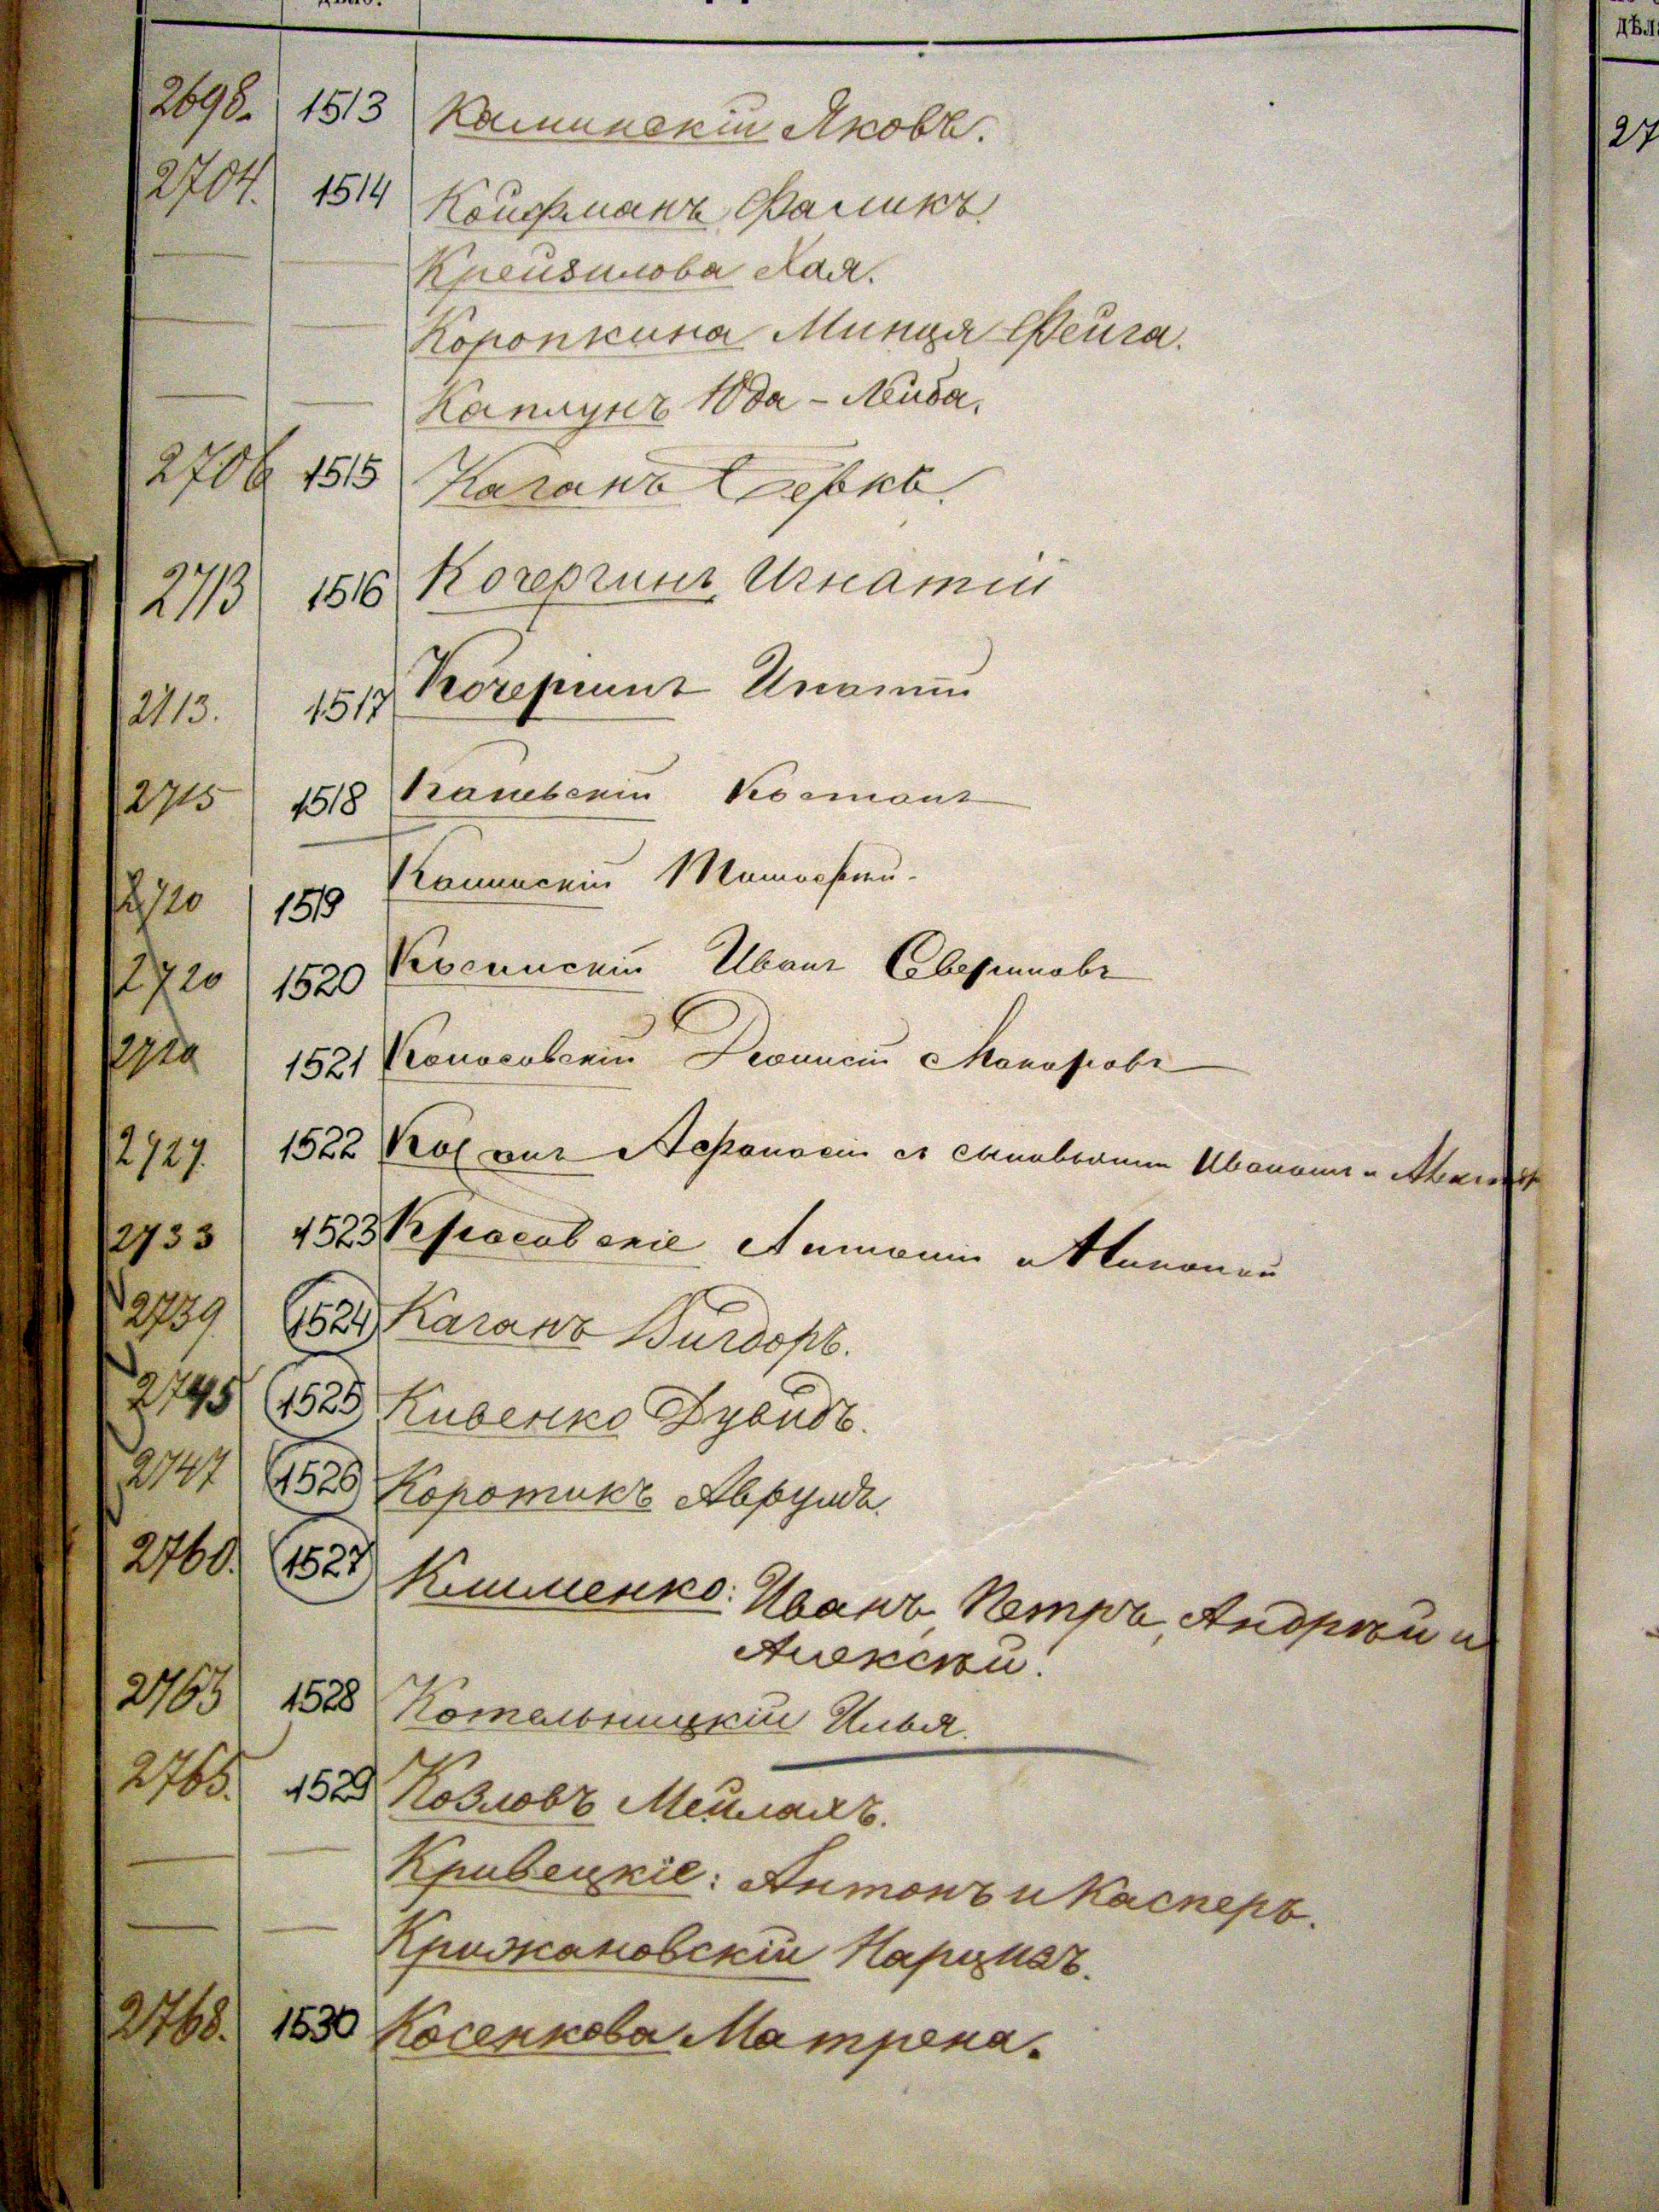 дѣло.
дѣл
27
2698. 1513 Каминскій Яковъ.
2704. 1514 Койфманъ Фаликъ.
— — Крейзилова Хая.
— — Коропкина Минця Фейга.
— — Каплунъ Юда - Лейба.
2706 1515 Каганъ Беркъ.
2713 1516 Кочергинъ Игнатій
2713. 1517 Кочергинъ Игнатій
2715 1518 Каневскій
2720 1519 Каминскій Тимофей.
2720 1520 Косинскій Иванъ Севериновъ
2720 1521 Діонисій Макаровъ
2727. 1522 Афанасій съ сыновьями Иваномъ и
2733 1523 Красовскіе Антоній и
2739 1524 Каганъ Вигдоръ.
2745 1525 Кивенко Дувидъ.
2747 1526 Коротикъ Аврумъ.
2760. 1527 Клименко: Иванъ, Петръ, Андрѣй и
Алексѣй.
2763 1528 Котельницкій Илья.
2765. 1529 Козловъ Мейлахъ.
— — Кривецкіе: Антонъ и Касперъ.
— — Крижановскій Нарцизъ.
2768. 1530 Косенкова Матрена.